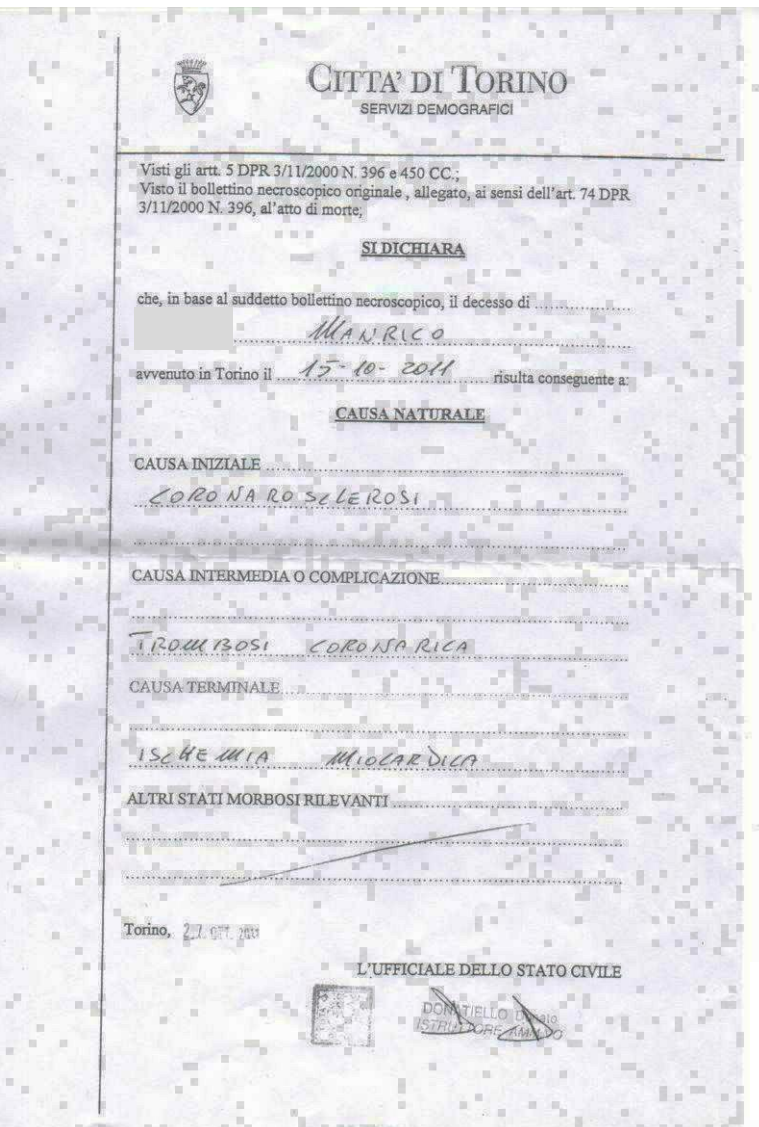 CITTA' DI TORINO
SERVIZI DEMOGRAFICI
Visti gli artt. 5 DPR 3/11/2000 N. 396 e 450 CC.;
Visto il bollettino necroscopico originale , allegato, ai sensi dell'art. 74 DPR
3/11/2000 N. 396, al'atto di morte;
SI DICHIARA
che, in base al suddetto bollettino necroscopico, il decesso di ..................
MANRICO
avvenuto in Torino il 15-10-2011 risulta conseguente a:
CAUSA NATURALE
CAUSA INIZIALE
CORONAROSCLEROSI
CAUSA INTERMEDIA O COMPLICAZIONE
TROMBOSI CORONARICA
CAUSA TERMINALE
ISCHEMIA MIOCARDICA
ALTRI STATI MORBOSI RILEVANTI
Torino, 27 OTT. 2011
L'UFFICIALE DELLO STATO CIVILE
DONATIELLO